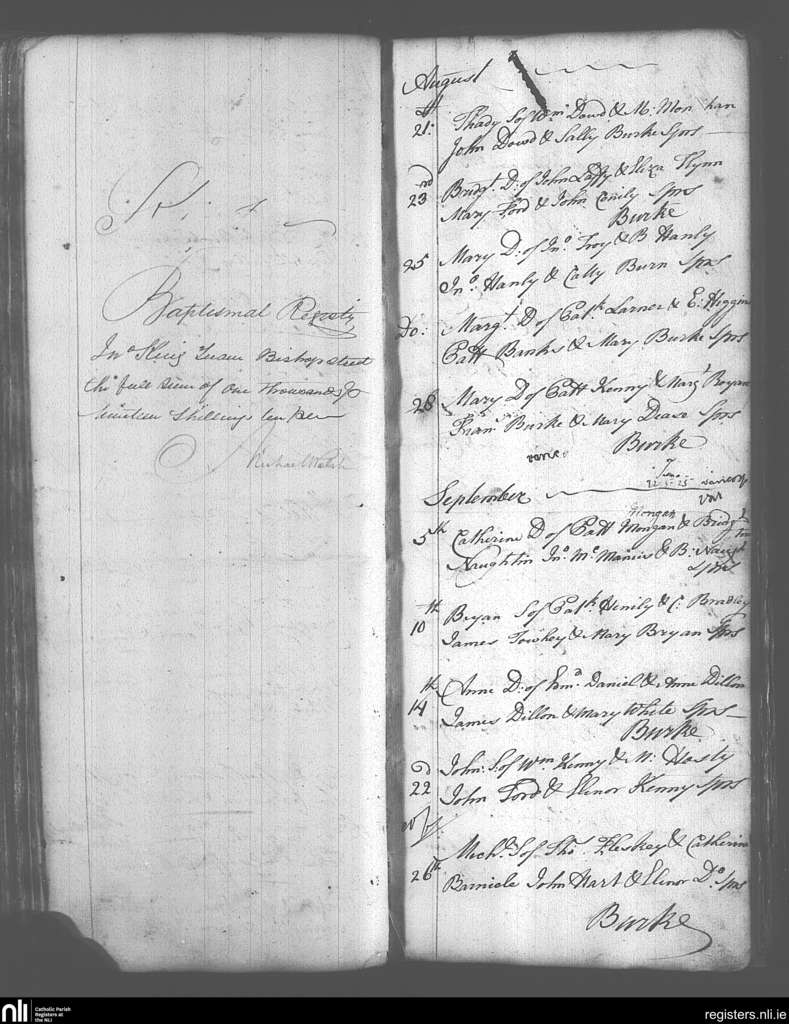 Baptismal Registry
Jno King Tuam Bishop street
the full sum of one thousand &
nineteen Shillings ten pen
August
21st Thady S. of Wm Dowd & M. Mon han
John Dowd & Sally Burke Sprs
23rd Bridgt D. of John Laffy & Eliza Flynn
Mary Ford & John Sprs
Burke
25 Mary D. of Jno. Troy & B Hanly
Jno. Hanly & Catty Burn Sprs
Do: Margt D of Patk Larner & E. Higgin
Patt Banks & Mary Burke Sprs
28 Mary D of Patt Kenny & Margt Bryan
Fran Burke & Mary Deave Sprs
Burke
September
Mongan
5th Catherine D of Patt Mongan & Bridgt
Naughtin Jno. Mc Manus & B: Naugh
Sprs
10th Bryan S of Patk Henily & C: Bradley
James Towhey & Mary Bryan Sprs
14th Anne D: of Edmd Daniel & Anne Dillon
James Dillon & Mary White Sprs
Burke
22d John S. of Wm Kenny & M: Hosty
John Ford & Elenor Kenny Sprs
26th Michl S of Thos Fleskey & Catherin
Barniele John Hart & Elenor Do Sprs
Burke
nli Catholic Parish
Registers at
the NLI
registers.nli.ie